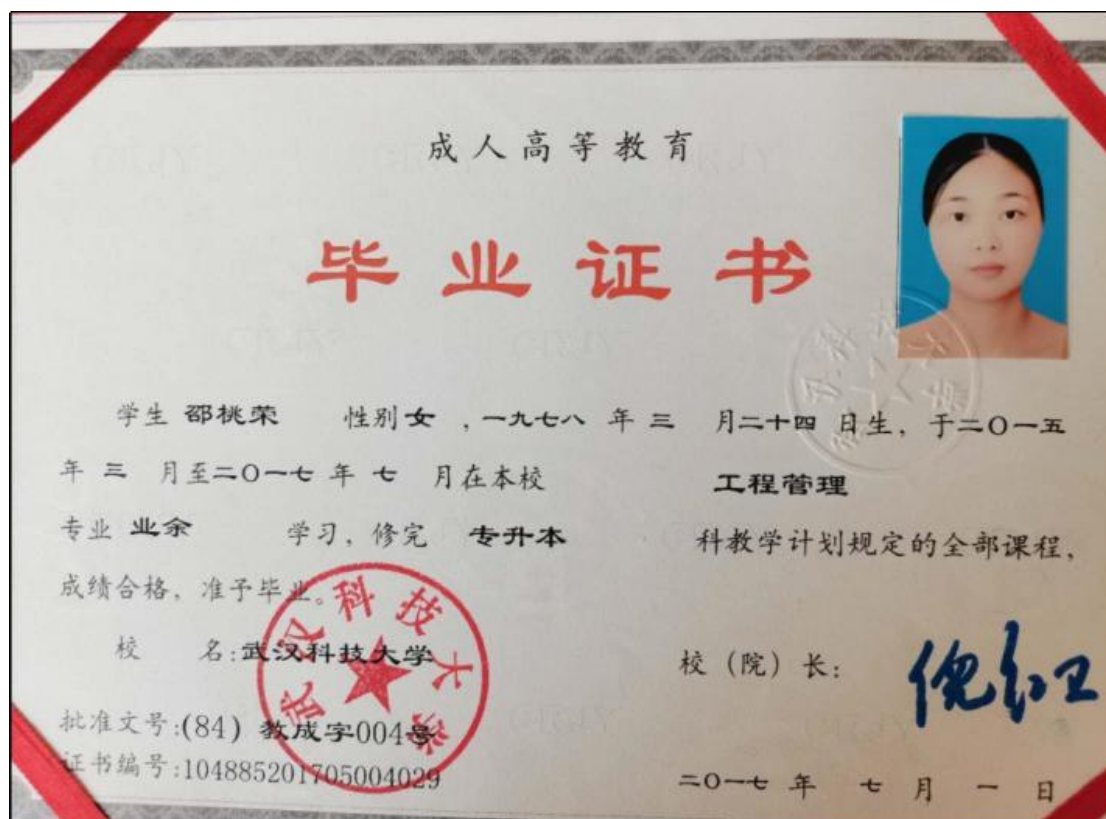 成人高等教育
毕业证书
学生 邵桃荣 性别 女 ，一九七八 年 三 月二十四 日生，于二〇一五
年 三 月至二〇一七 年 七 月在本校 工程管理
专业 业余 学习，修完 专升本 科教学计划规定的全部课程，
成绩合格，准予毕业。
校 名：武汉科技大学
校（院）长： 倪红卫
批准文号：(84) 教成字004号
证书编号：104885201705004029
二〇一七 年 七 月 一 日
武汉科技大学